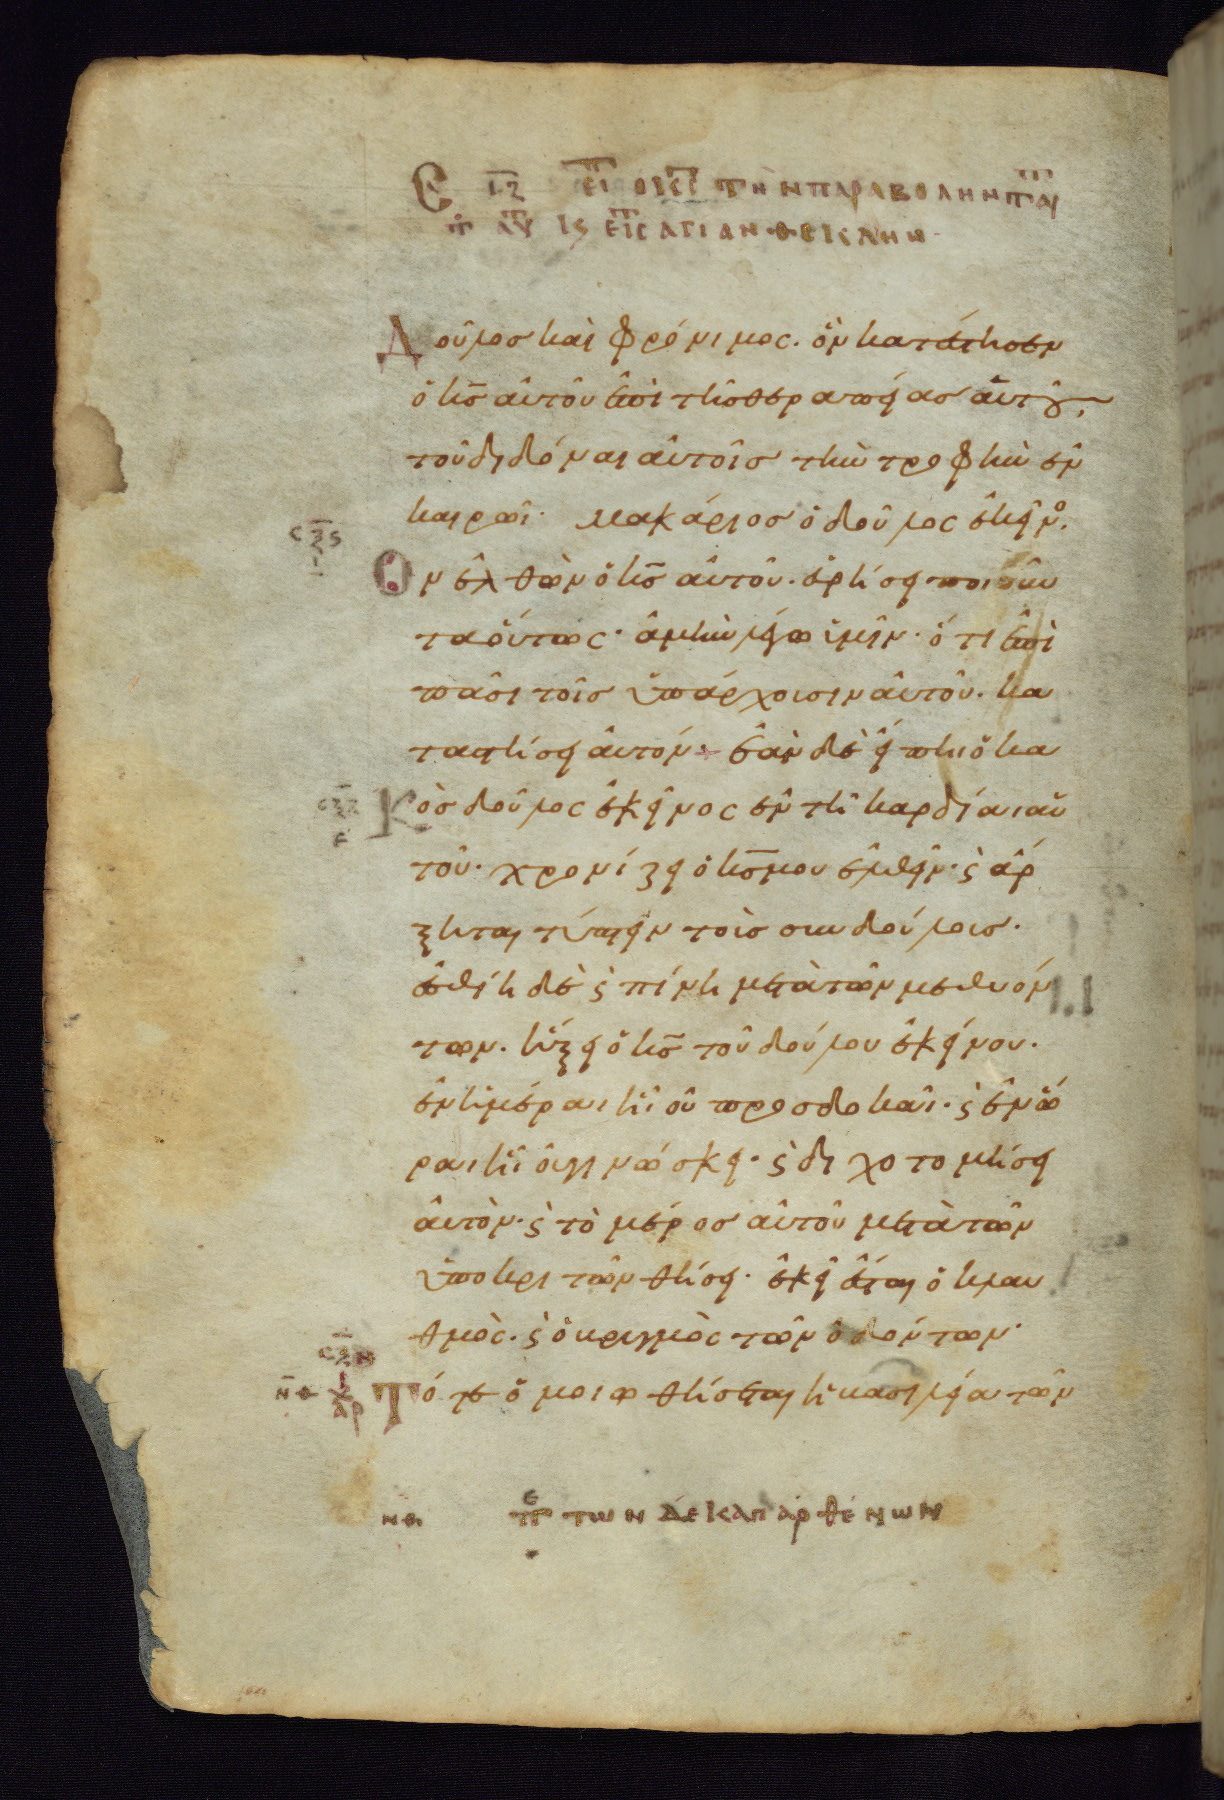 τὴν παραβολὴν
εἰς ἁγίαν θεκλην
Δοῦλος καὶ φρόνιμος. ὃν κατέστησεν
ὁ κ̅ς̅ αὐτοῦ ἐπὶ τῆς θεραπείας αὐτοῦ,
τοῦ διδόναι αὐτοῖς τὴν τροφὴν ἐν
καιρῶι. μακάριος ὁ δοῦλος ἐκεῖνο.
Ὃν ἐλθὼν ὁ κ̅ς̅ αὐτοῦ. εὑρήσει ποιοῦν
τα οὕτως. ἀμὴν λέγω ὑμῖν. ὅτι ἐπὶ
πᾶσι τοῖς ὑπάρχουσιν αὐτοῦ. κα
ταστήσει αὐτόν. ἐὰν δὲ εἴπη ὁ κα
Κὸς δοῦλος ἐκεῖνος ἐν τῇ καρδίαι αὐ
τοῦ. χρονίζει ὁ κ̅ς̅ μου ἐλθεῖν. ϛ ἄρ
ξηται τύπτειν τοὺς συνδούλους.
ἐσθίη δὲ ϛ πίνη μετὰ τῶν μεθυόν
των. ἥξει ὁ κ̅ς̅ τοῦ δούλου ἐκείνου.
ἐν ἡμέραι ἧι οὐ προσδοκᾶι. ϛ ἐν ὥ
ραι ἧι οὐ γινώσκει. ϛ διχοτομήσει
αὐτὸν. ϛ τὸ μέρος αὐτοῦ μετὰ τῶν
ὑποκριτῶν θήσει. ἐκεῖ ἔσται ὁ κλαυ
θμὸς. ϛ ὁ βρυγμὸς τῶν ὀδόντων.
Τότε ὁμοιωθήσεται ἡ βασιλεία τῶν
νθ. πε τῶν δέκα παρθένων